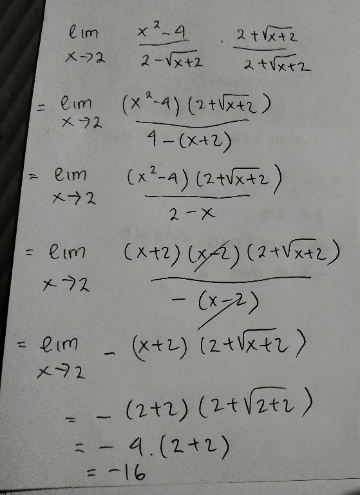 lim x→2 (x²-4)/(2-√(x+2)) · (2+√(x+2))/(2+√(x+2))
= lim x→2 ((x²-4)(2+√(x+2)))/(4-(x+2))
= lim x→2 ((x²-4)(2+√(x+2)))/(2-x)
= lim x→2 ((x+2)(x-2)(2+√(x+2)))/(-(x-2))
= lim x→2 -(x+2)(2+√(x+2))
= -(2+2)(2+√(2+2))
= -4.(2+2)
= -16